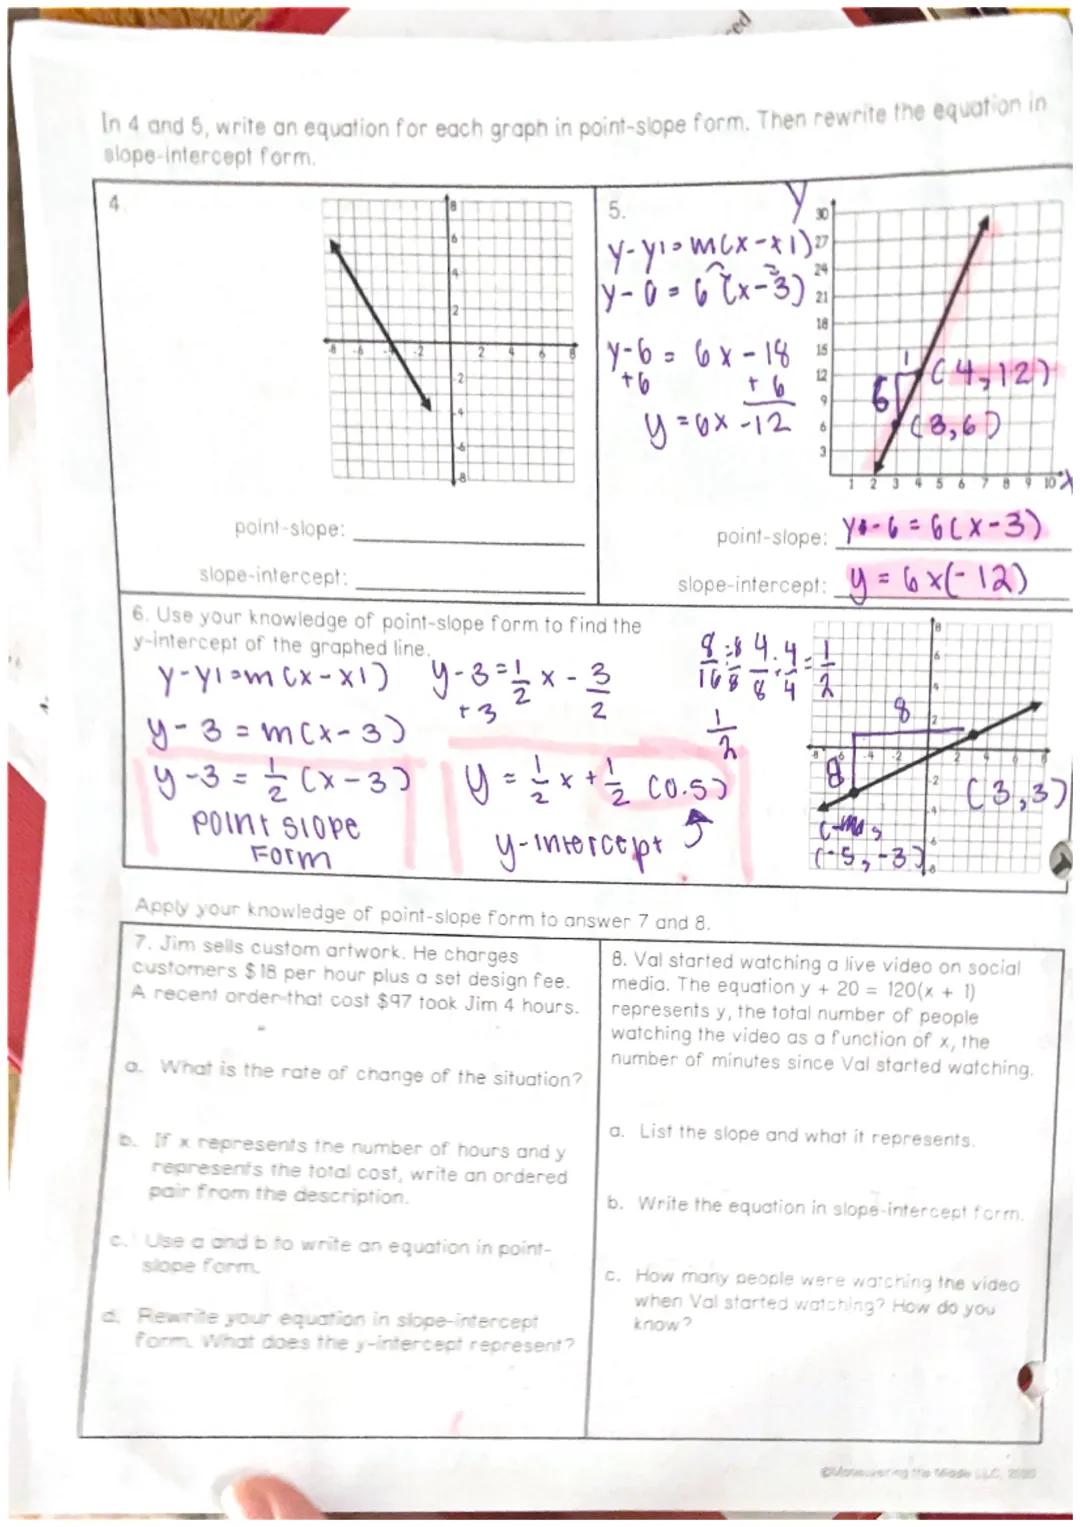 In 4 and 5, write an equation for each graph in point-slope form. Then rewrite the equation in
slope-intercept form.
4.
8
6
4
2
-8 -6 -2 2 4 6 8
-2
-4
-6
-8
point-slope:
slope-intercept:
5.
y-y1=m(x-x1)
y-6=6(x-3)
y-6=6x-18
+6 +6
y=6x-12
Y
30
27
24
21
18
15
12
9
6
3
1 2 3 4 5 6 7 8 9 10 X
1
6
(4,12)
(3,6)
point-slope: y-6=6(x-3)
slope-intercept: y=6x(-12)
6. Use your knowledge of point-slope form to find the
y-intercept of the graphed line.
y-y1=m(x-x1)
y-3=m(x-3)
y-3=1/2(x-3)
Point slope
Form
y-3=1/2x-3/2
+3
y=1/2x+1/2 (0.5)
y-intercept
8/16÷8/8 4/8÷4/4=1/2
1/2
8
8
(3,3)
(-5,-3)
Apply your knowledge of point-slope form to answer 7 and 8.
7. Jim sells custom artwork. He charges
customers $18 per hour plus a set design fee.
A recent order that cost $97 took Jim 4 hours.
a. What is the rate of change of the situation?
b. If x represents the number of hours and y
represents the total cost, write an ordered
pair from the description.
c. Use a and b to write an equation in point-
slope form.
d. Rewrite your equation in slope-intercept
form. What does the y-intercept represent?
8. Val started watching a live video on social
media. The equation y + 20 = 120(x + 1)
represents y, the total number of people
watching the video as a function of x, the
number of minutes since Val started watching.
a. List the slope and what it represents.
b. Write the equation in slope-intercept form.
c. How many people were watching the video
when Val started watching? How do you
know?
©Maneuvering the Middle LLC, 2020